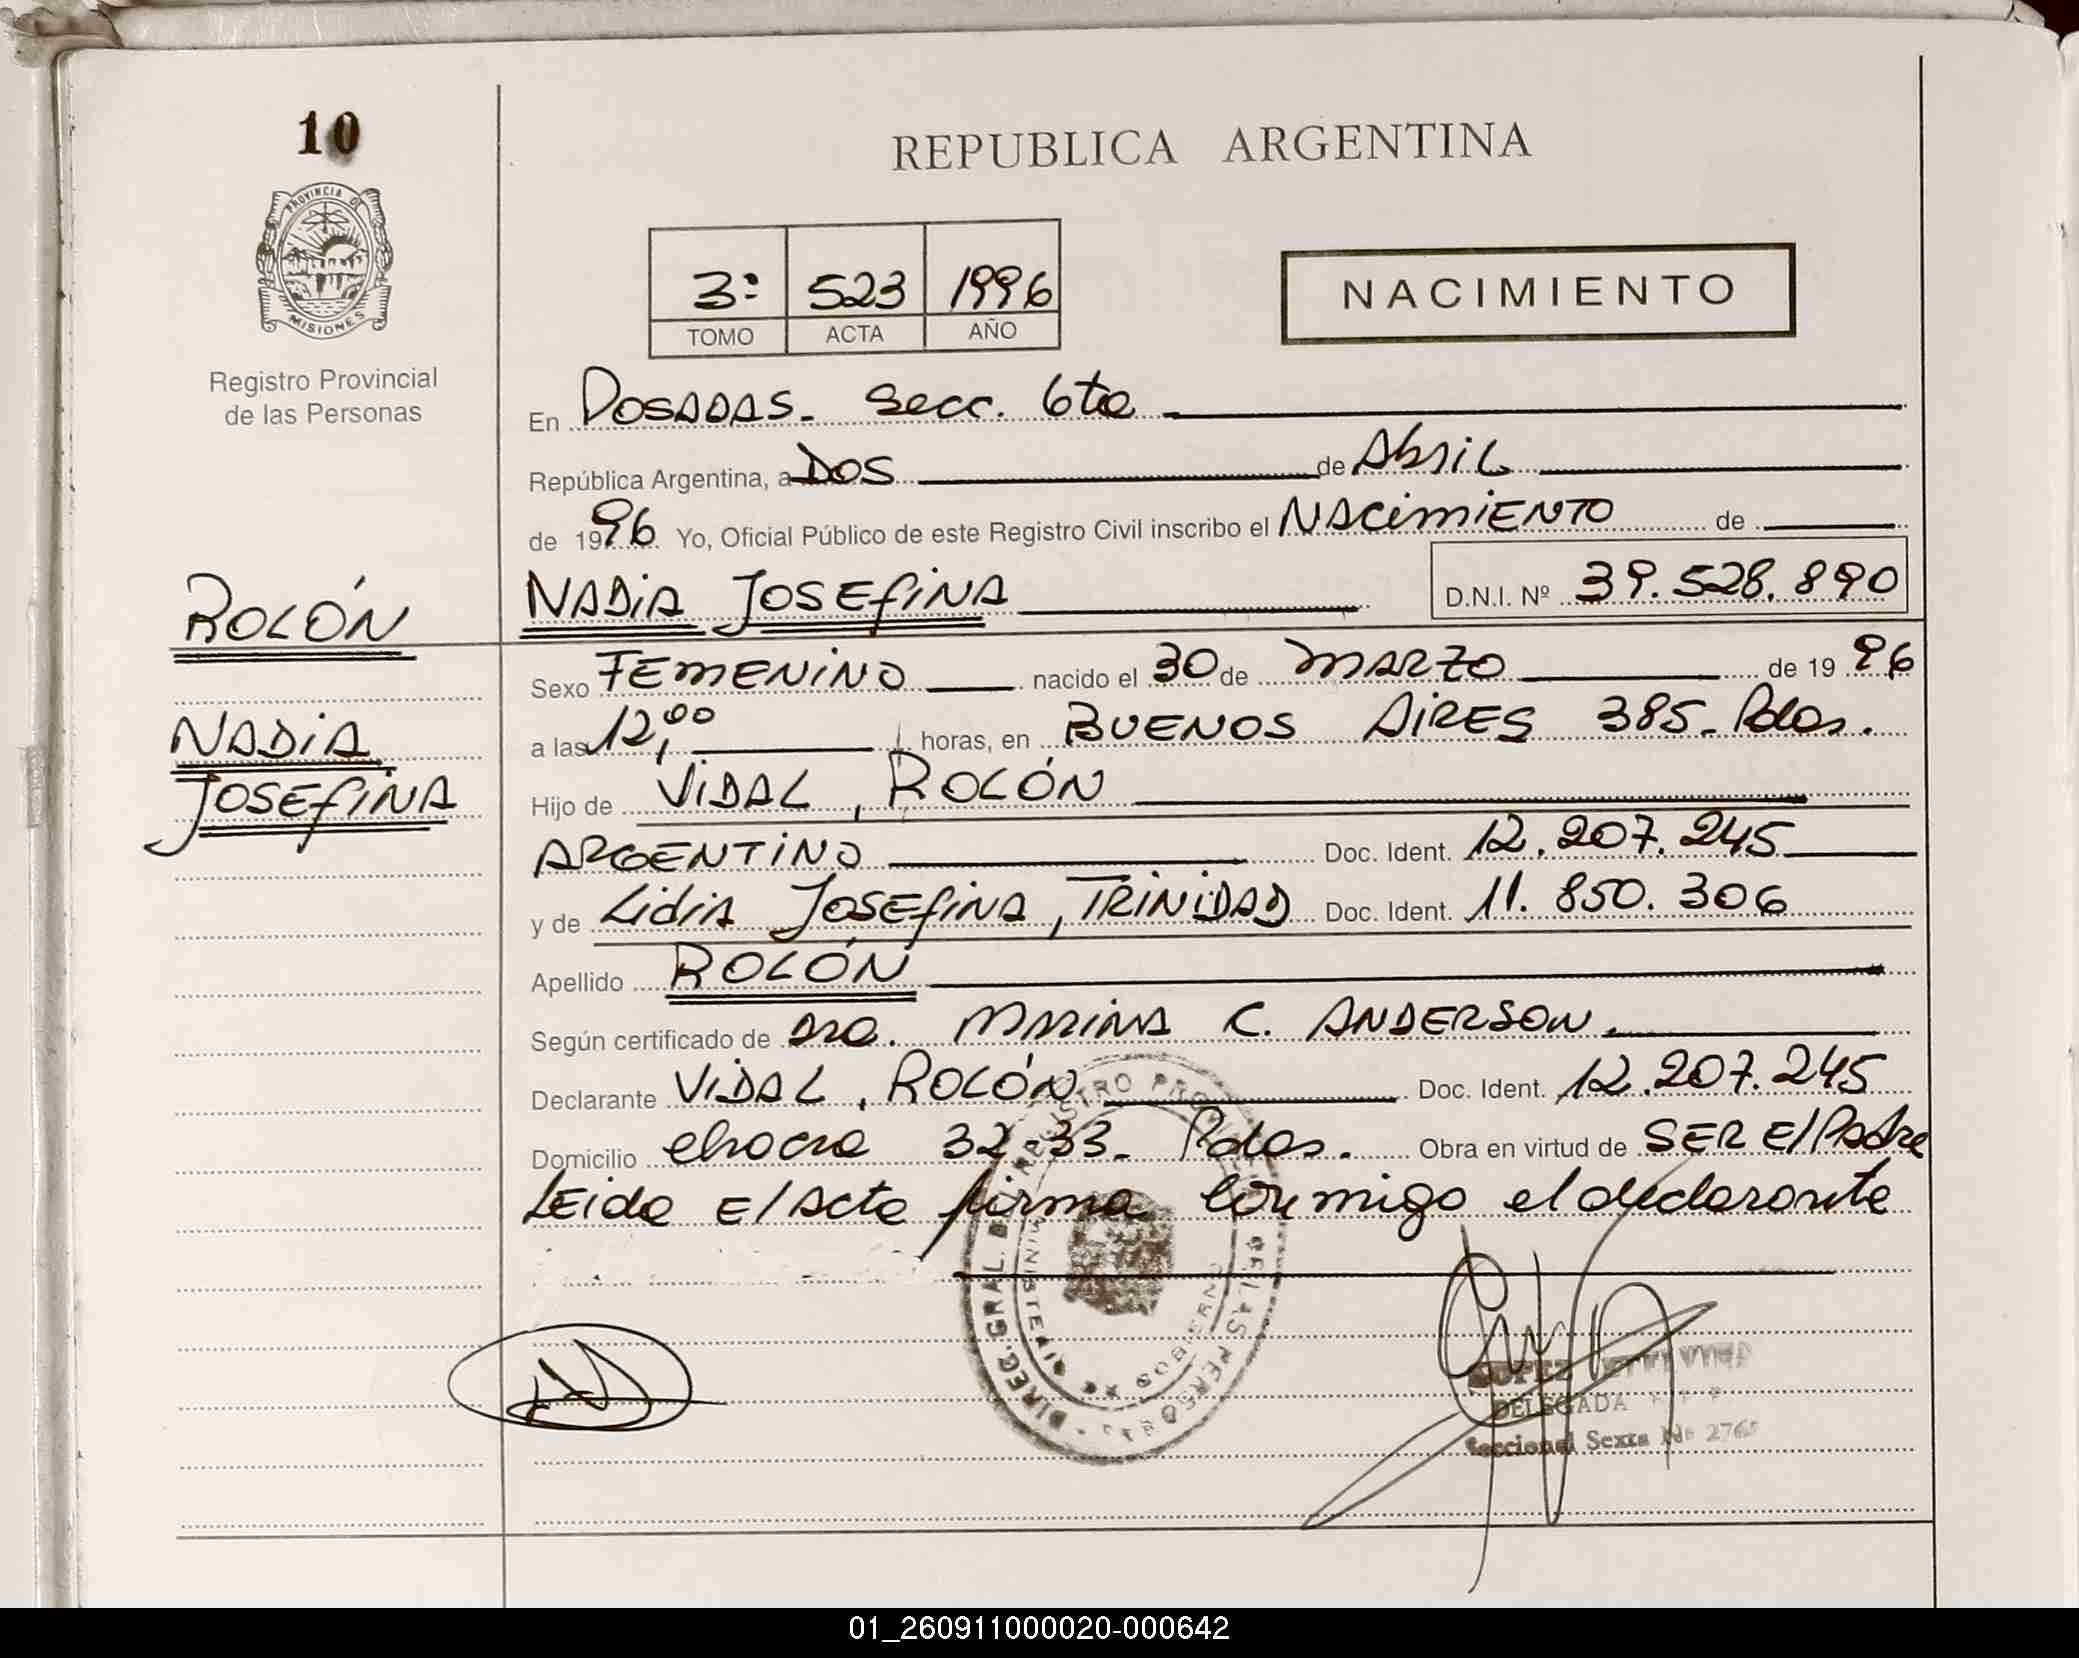 10
PROVINCIA DE
MISIONES
Registro Provincial
de las Personas
REPUBLICA ARGENTINA
3º 523 1996
TOMO ACTA AÑO
NACIMIENTO
En Posadas. Secc. 6ta
República Argentina, a Dos de Abril
de 1996 Yo, Oficial Público de este Registro Civil inscribo el NACIMIENTO de
ROLÓN
NADIA
JOSEFINA
NADIA JOSEFINA D.N.I. Nº 39.528.890
Sexo FEMENINO nacido el 30 de MARZO de 1996
a las 12,00 horas, en BUENOS AIRES 385. Pdas.
Hijo de VIDAL, ROLÓN
ARGENTINO Doc. Ident. 12.207.245
y de Lidia JOSEFINA, TRINIDAD Doc. Ident. 11.850.306
Apellido ROLÓN
Según certificado de Dra. MARINA C. ANDERSON.
Declarante VIDAL, ROLÓN Doc. Ident. 12.207.245
Domicilio chacra 32-33. Pdas. Obra en virtud de SER El Padre
Leida El Acta firma conmigo el declarante
DIREC. GRAL. DE REGISTRO PROVINCIAL DE LAS PERSONAS
MINISTERIO GOBIERNO
LOPEZ
DELEGADA
Seccional Sexta
01_260911000020-000642